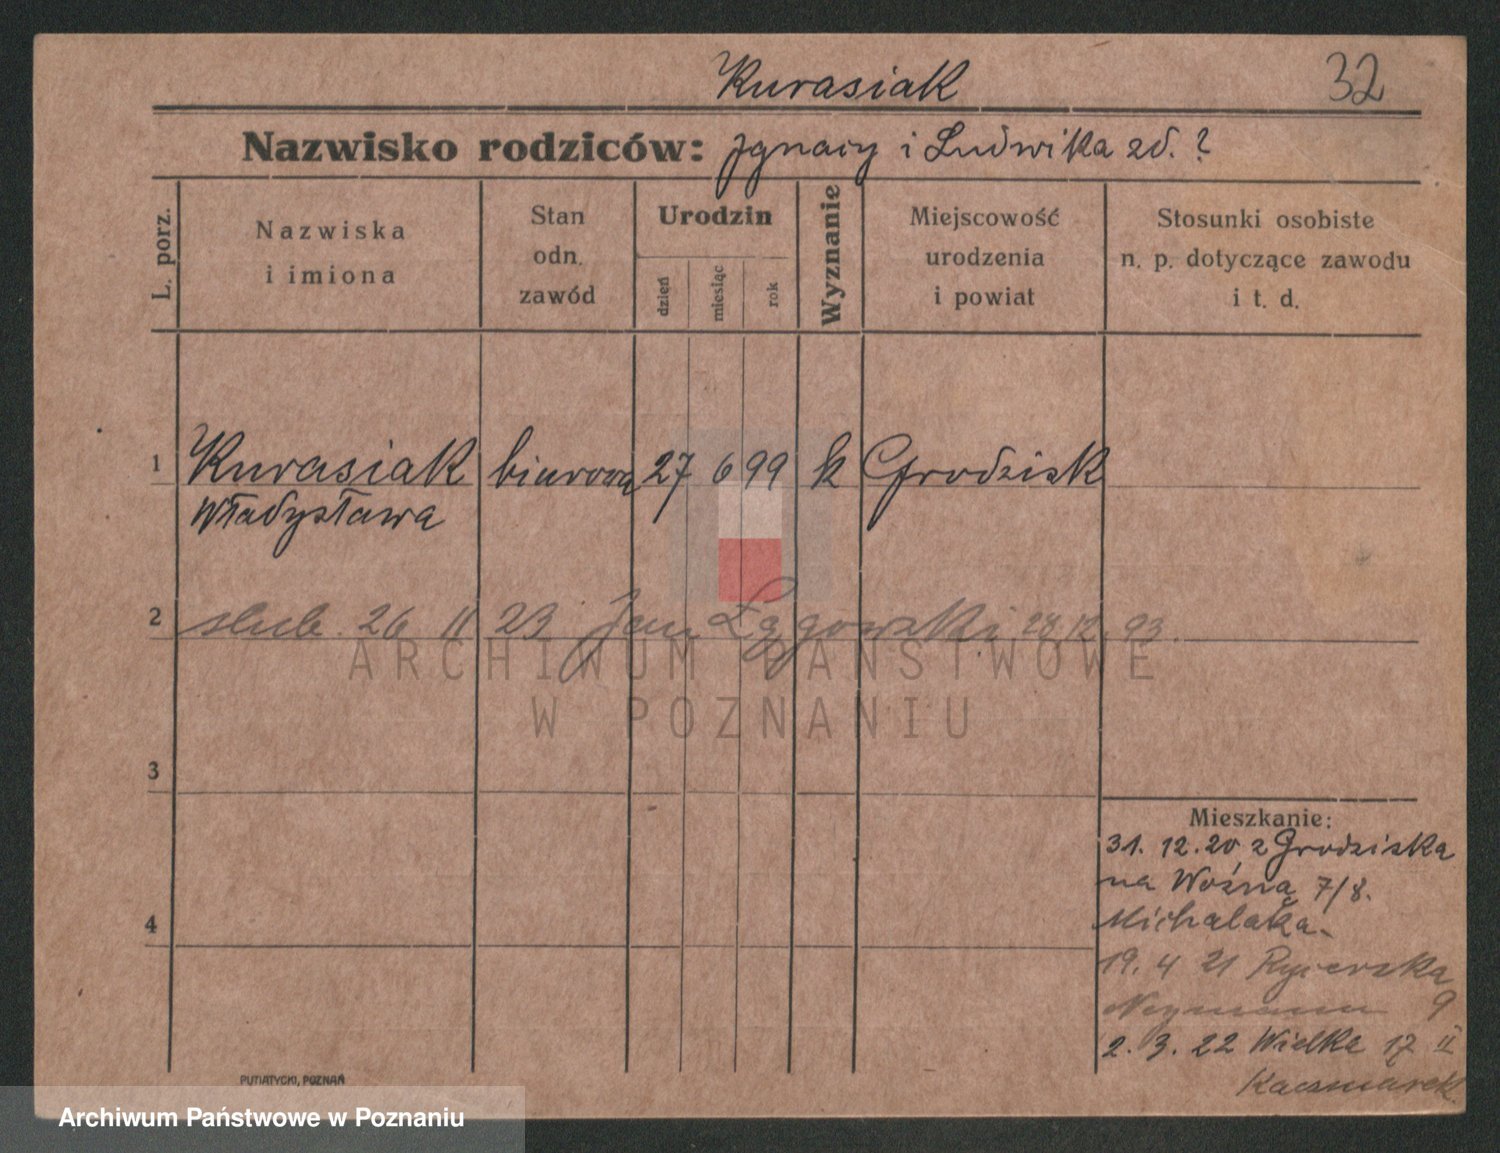 Kurasiak
32
Nazwisko rodziców: Ignacy i Ludwika zd. ?
L. porz.
Nazwiska
i imiona
Stan
odn.
zawód
Urodzin
dzień
miesiąc
rok
Wyznanie
Miejscowość
urodzenia
i powiat
Stosunki osobiste
n. p. dotyczące zawodu
i t. d.
1 Kurasiak biurowa 27 6 99 k Grodzisk
Władysława
2 slub. 26 II 23 Jan Łągowski 28.12.93.
ARCHIWUM PAŃSTWOWE
W POZNANIU
3
Mieszkanie:
31. 12. 20 z Grodziska
na Woźną 7/8.
Michalaka.
4
19. 4 21 Rycerska
Neymann 9
2. 3. 22 Wielka 17 II
Kaczmarek.
PUTIATYCKI, POZNAŃ
Archiwum Państwowe w Poznaniu